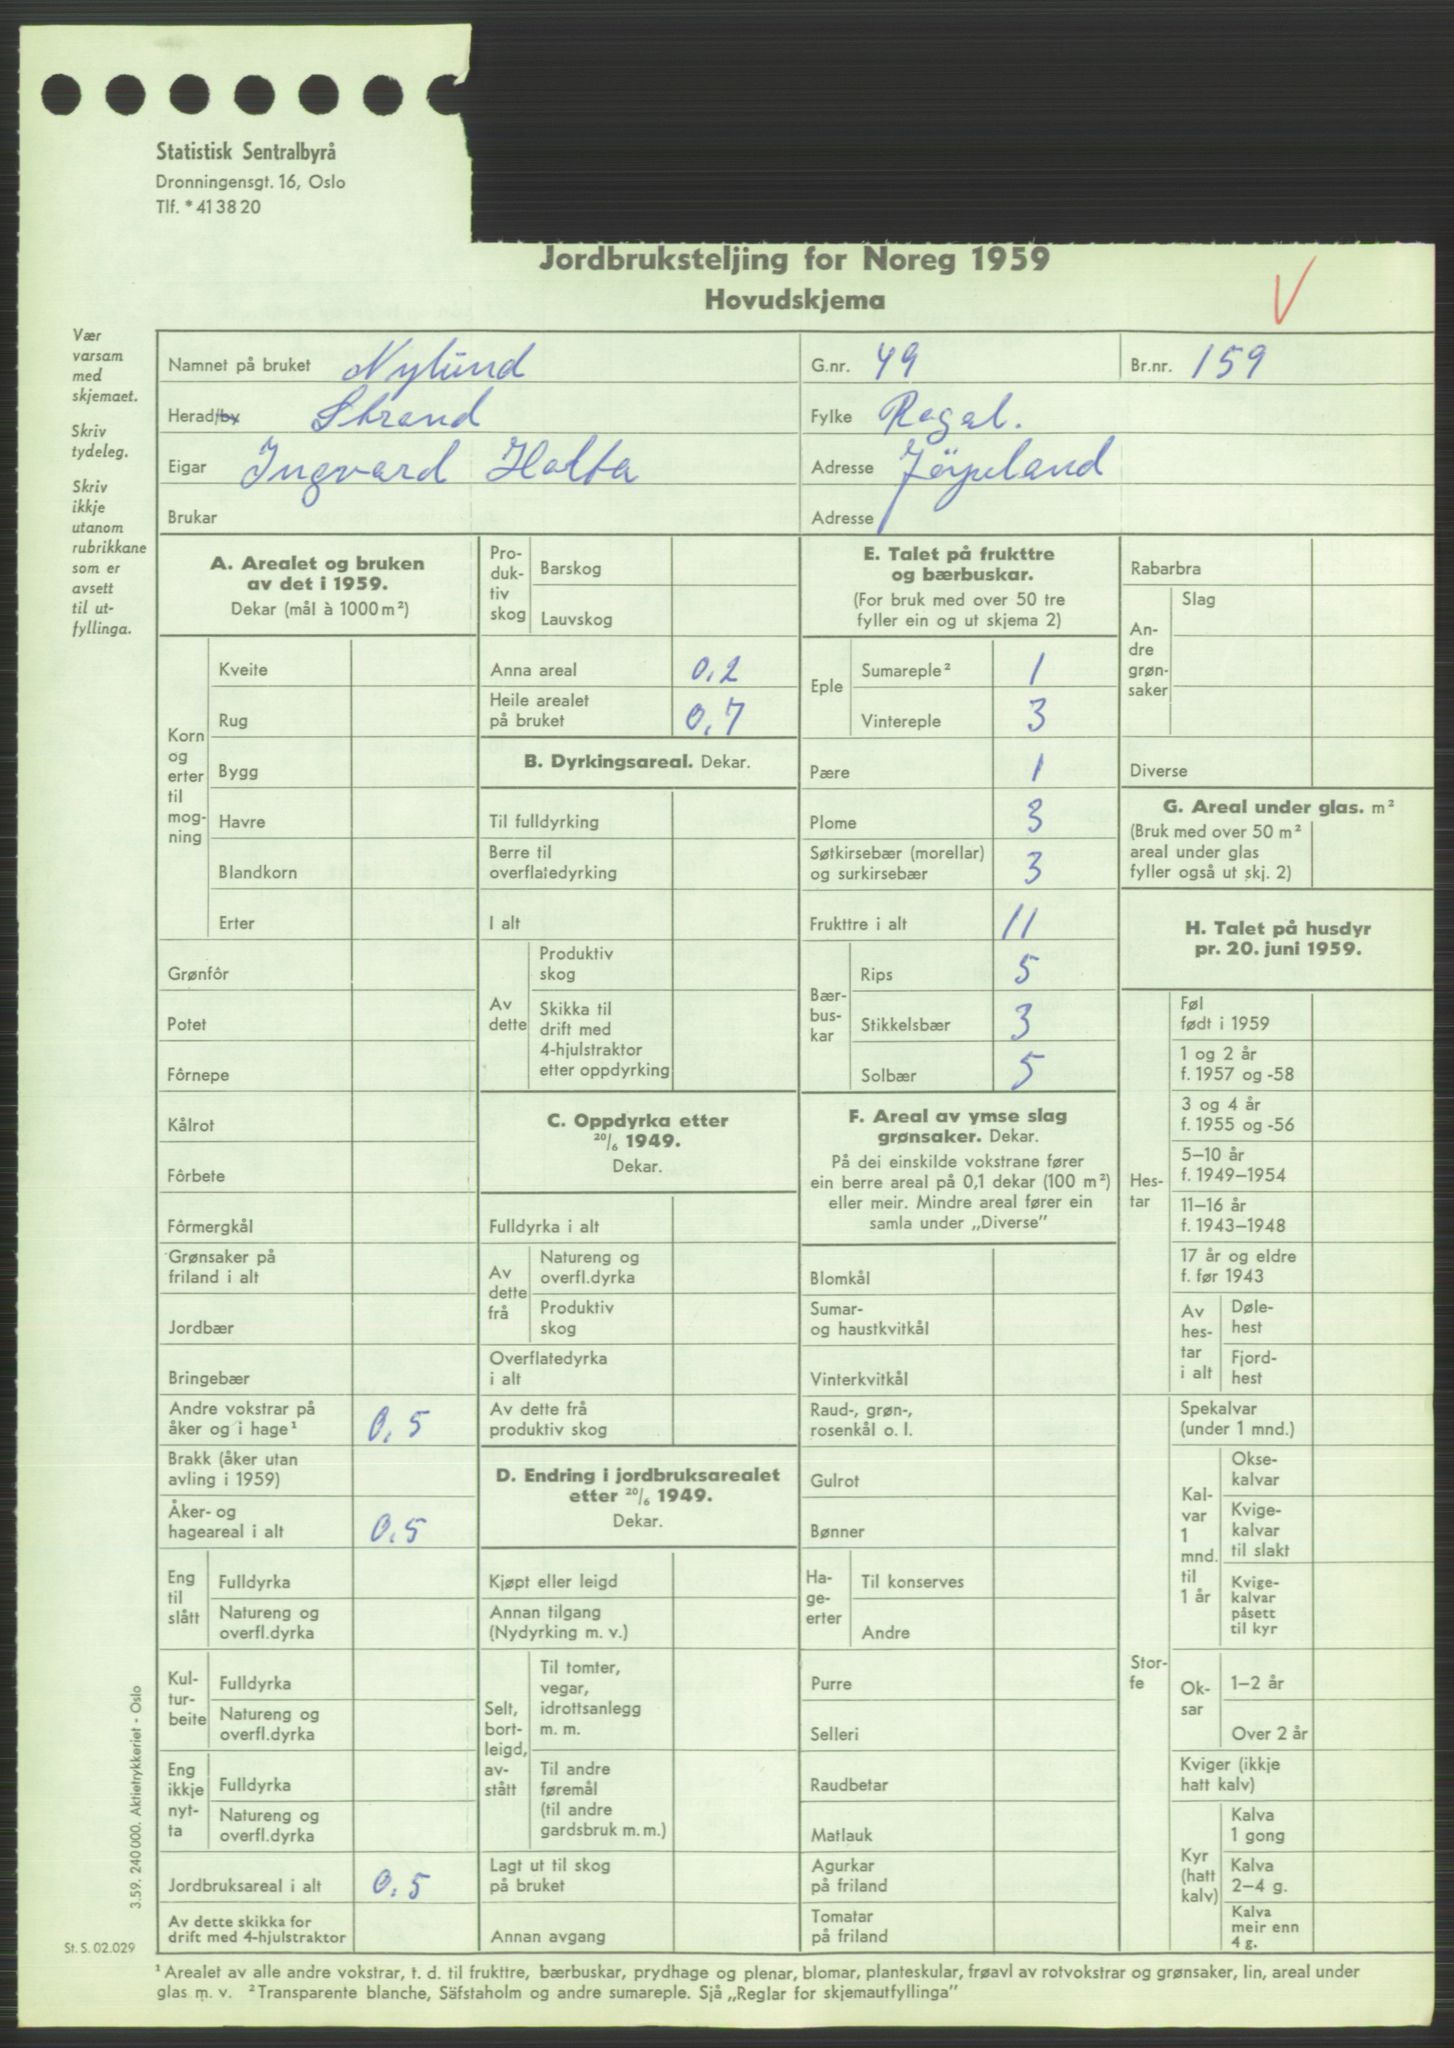 Statistisk Sentralbyrå
Dronningensgt. 16, Oslo
Tlf. * 41 38 20
Jordbruksteljing for Noreg 1959
Hovudskjema
V
Vær
varsam
med
skjemaet.
Skriv
tydeleg.
Skriv
ikkje
utanom
rubrikkane
som er
avsett
til ut-
fyllinga.
Namnet på bruket Nylund G.nr. 49 Br.nr. 159
Herad/by Strand Fylke Rogal.
Eigar Ingvard Holta Adresse Jörpeland
Brukar Adresse
A. Arealet og bruken
av det i 1959.
Dekar (mål à 1000 m²)
Korn
og
erter
til
mog-
ning
Kveite
Rug
Bygg
Havre
Blandkorn
Erter
Grønfôr
Potet
Fôrnepe
Kålrot
Fôrbete
Fôrmergkål
Grønsaker på
friland i alt
Jordbær
Bringebær
Andre vokstrar på
åker og i hage¹ 0,5
Brakk (åker utan
avling i 1959)
Åker- og
hageareal i alt 0,5
Eng
til
slått
Fulldyrka
Natureng og
overfl.dyrka
Kul-
tur-
beite
Fulldyrka
Natureng og
overfl.dyrka
Eng
ikkje
nyt-
ta
Fulldyrka
Natureng og
overfl.dyrka
Jordbruksareal i alt 0,5
Av dette skikka for
drift med 4-hjulstraktor
Pro-
duk-
tiv
skog
Barskog
Lauvskog
Anna areal 0,2
Heile arealet
på bruket 0,7
B. Dyrkingsareal. Dekar.
Til fulldyrking
Berre til
overflatedyrking
I alt
Av
dette
Produktiv
skog
Skikka til
drift med
4-hjulstraktor
etter oppdyrking
C. Oppdyrka etter
20/6 1949.
Dekar.
Fulldyrka i alt
Av
dette
frå
Natureng og
overfl.dyrka
Produktiv
skog
Overflatedyrka
i alt
Av dette frå
produktiv skog
D. Endring i jordbruksarealet
etter 20/6 1949.
Dekar.
Kjøpt eller leigd
Annan tilgang
(Nydyrking m. v.)
Selt,
bort-
leigd,
av-
stått
Til tomter,
vegar,
idrottsanlegg
m. m.
Til andre
føremål
(til andre
gardsbruk m. m.)
Lagt ut til skog
på bruket
Annan avgang
E. Talet på frukttre
og bærbuskar.
(For bruk med over 50 tre
fyller ein og ut skjema 2)
Eple
Sumareple² 1
Vintereple 3
Pære 1
Plome 3
Søtkirsebær (morellar)
og surkirsebær 3
Frukttre i alt 11
Bær-
bus-
kar
Rips 5
Stikkelsbær 3
Solbær 5
F. Areal av ymse slag
grønsaker. Dekar.
På dei einskilde vokstrane fører
ein berre areal på 0,1 dekar (100 m²)
eller meir. Mindre areal fører ein
samla under „Diverse”
Blomkål
Sumar-
og haustkvitkål
Vinterkvitkål
Raud-, grøn-,
rosenkål o. l.
Gulrot
Bønner
Ha-
ge-
erter
Til konserves
Andre
Purre
Selleri
Raudbetar
Matlauk
Agurkar
på friland
Tomatar
på friland
Rabarbra
An-
dre
grøn-
saker
Slag
Diverse
G. Areal under glas. m²
(Bruk med over 50 m²
areal under glas
fyller også ut skj. 2)
H. Talet på husdyr
pr. 20. juni 1959.
Hes-
tar
Føl
født i 1959
1 og 2 år
f. 1957 og -58
3 og 4 år
f. 1955 og -56
5–10 år
f. 1949–1954
11–16 år
f. 1943–1948
17 år og eldre
f. før 1943
Av
hes-
tar
i alt
Døle-
hest
Fjord-
hest
Stor-
fe
Spekalvar
(under 1 mnd.)
Kal-
var
1
mnd.
til
1 år
Okse-
kalvar
Kvige-
kalvar
til slakt
Kvige-
kalvar
påsett
til kyr
Ok-
sar
1–2 år
Over 2 år
Kviger (ikkje
hatt kalv)
Kyr
(hatt
kalv)
Kalva
1 gong
Kalva
2–4 g.
Kalva
meir enn
4 g.
3.59. 240 000. Aktietrykkeriet - Oslo
St. S. 02.029
¹ Arealet av alle andre vokstrar, t. d. til frukttre, bærbuskar, prydhage og plenar, blomar, planteskular, frøavl av rotvokstrar og grønsaker, lin, areal under
glas m. v. ² Transparente blanche, Säfstaholm og andre sumareple. Sjå „Reglar for skjemautfyllinga”